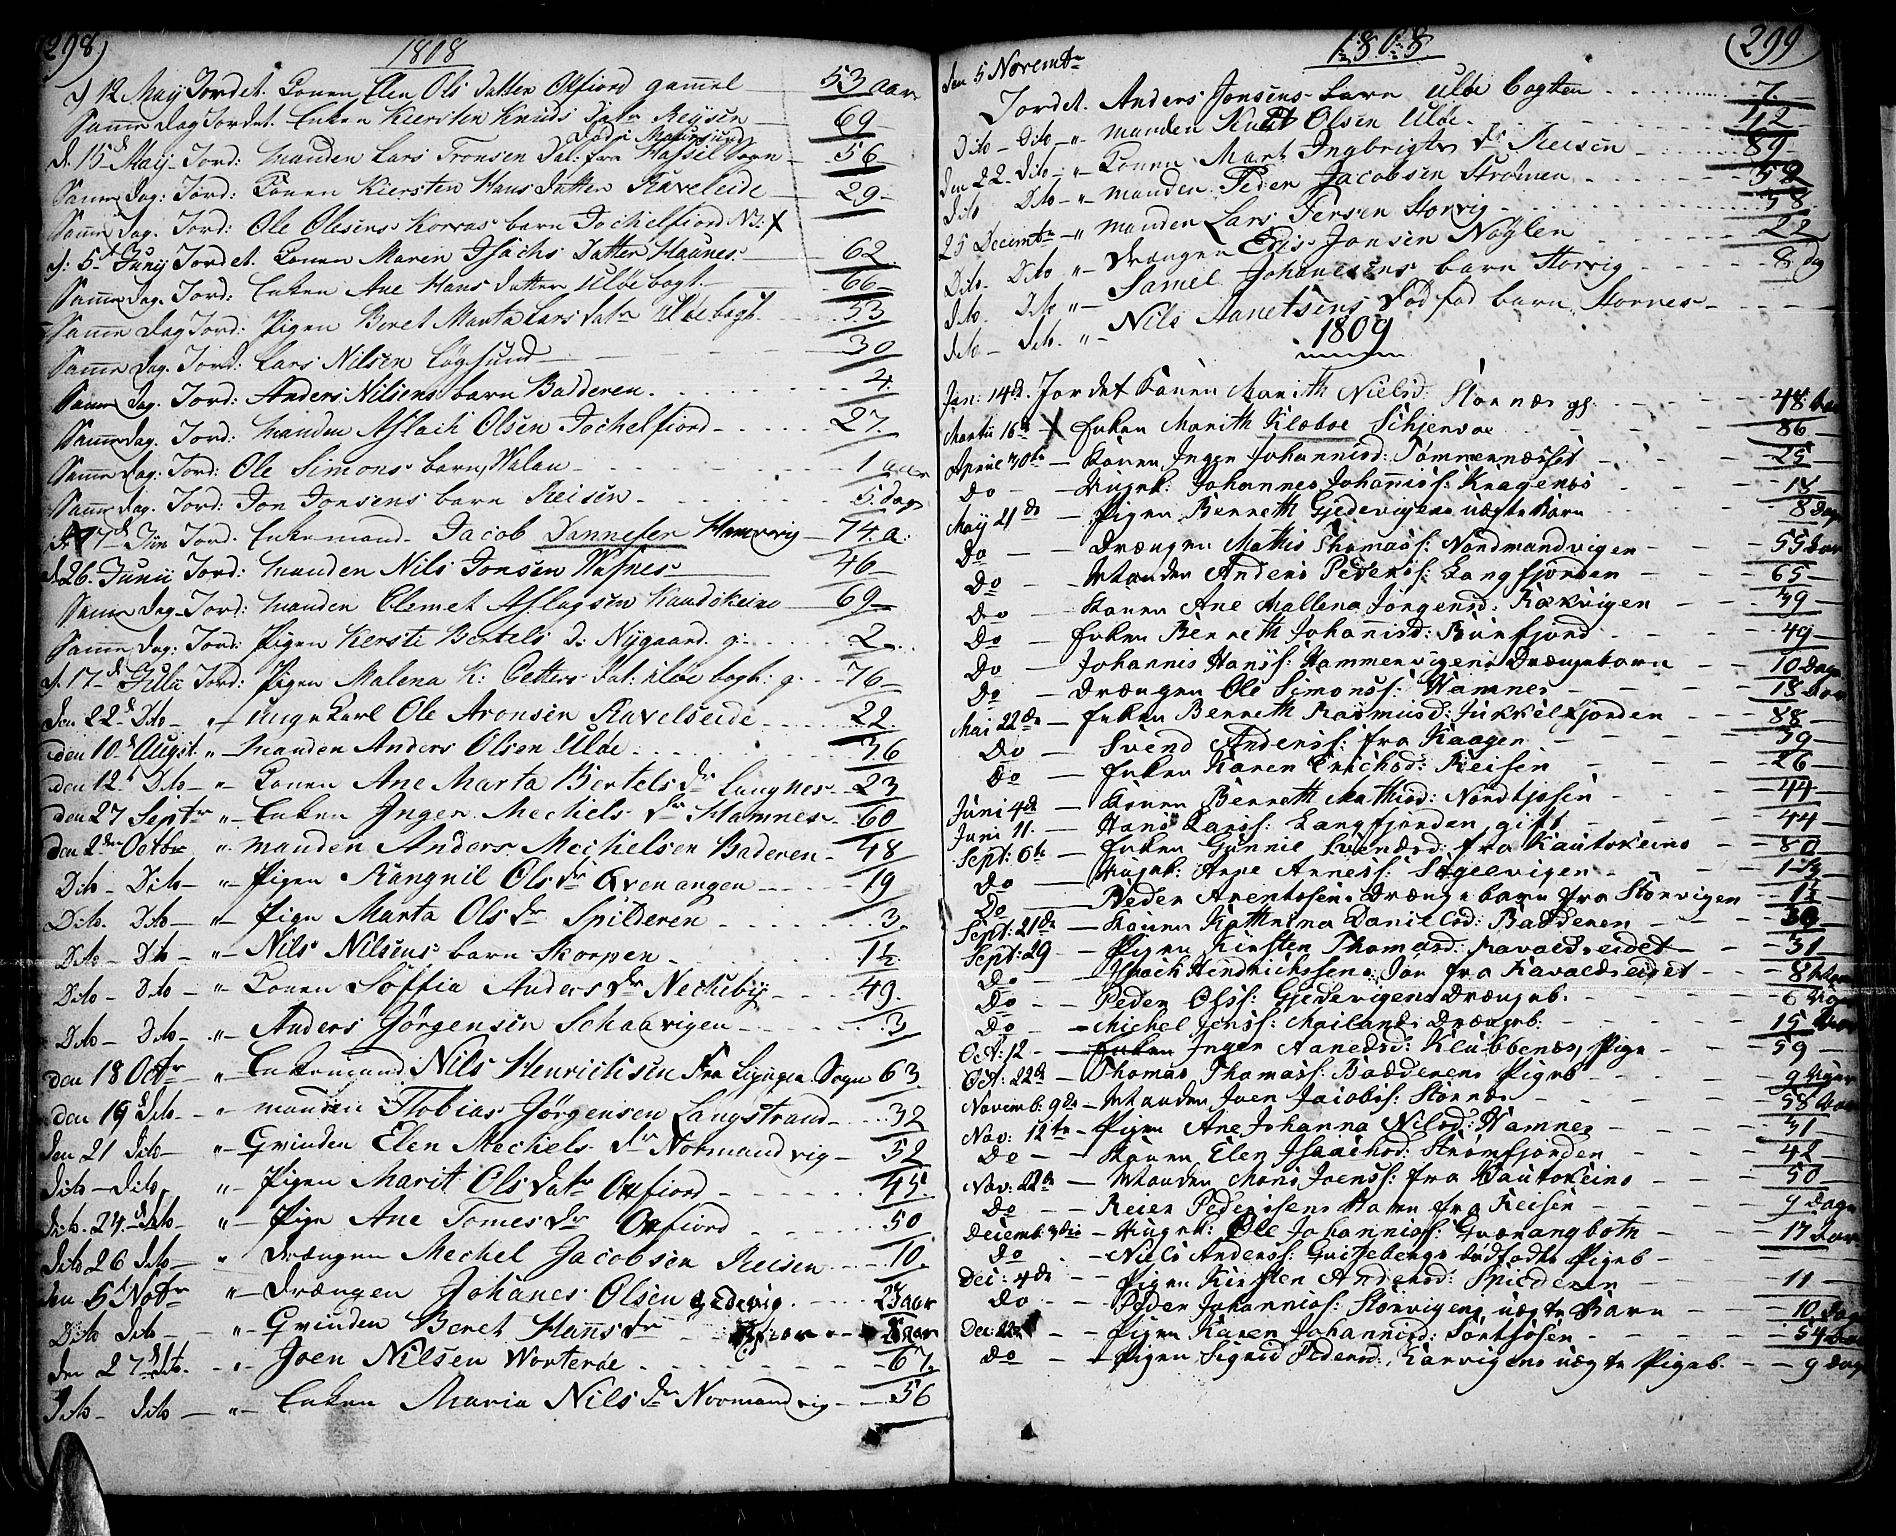 298)
1808
d. 12 Maij Jordet. Konen Elen Ols Datter Oxfiord gammel — 53 aar
Samme Dag Jordet. Enken Kiersten Knuds Datr Reysen — 69
Døde i Maursund
d. 15de Maij Jord: Manden Lars Tronsen Dal: fra Hassel Sogn — 56
Samme Dag: Jord: Konen Kiersten Hans Datter Raveleide — 29
Samme Dag. Jord: Ole Olesens Korvas barn Jochelfiord N3: X
d: 5te Junij Jordet. Konen Maren Isachs Datter Haunes — 62
Samme Dag. Jord: Enken Ane Hans Datter Uløe bogt. — 66
Samme Dag Jord: Pigen Beret Marta Lars Datr Uløebogt. — 53
Samme Dag. Jord: Lars Nilsen Løgsund — 30
Samme Dag. Jord: Anders Nilsens barn Badderen. — 4.
Samme Dag. Jord: Manden Aslach Olsen Jochelfiord — 27
Samme Dag: Jord: Ole Simons barn Walan — 1 aar
Samme Dag. Jord: Jon Jonsens barn Reisen — 5. dage
17de Jun Jord. Enkemand Jacob Dannefer Hamvig — 74. a.
d. 26. Junii Jord: Manden Nils Jonsen Wafnes — 46
Samme Dag Jord: Manden Clemet Aslagsen Kaudokeino — 69
Samme Dag: Jord: Pigen Kersti Bertels d: Nygaard. g: — 2
d. 17de Julii Jord: Pigen Malena K: Petters Dat: Uløe bogt: g. — 76
den 22de Dito — " — Unge Karl Ole Aronsen Ravelseide — 22
den 10de Augst. " — Manden Anders Olsen Uløe — 36
den 12te Dito — " — Konen Ane Marta Bertels dr Laugnes — 23
den 27 Septr " — Enken Inger Mechels dr Hamnes — 60
den 2den Octbr " — Manden Anders Mechelsen Baderen — 48
Dito — Dito — " — Pigen Rangnil Ols dr Qvenangen — 19
Dito. Dito — " — Pige Marta Ols dr Spilderen — 3.
Dito — Dito — " — Nils Nilsens barn Skorpen — 1½
Dito — dito — " Konen Soffia Anders dr Nechibij — 49.
Dito — Dito — " — Anders Jørgensen Schaarvigen — 3
den 18 Octr — " — Enkemand Nils Henrichsen Fra Lyngen Sogn 63
den 19 Dito — " Manden Tobias Jørgensen Langstrand — 32
den 21 Dito — " — Qvinden Elen Mechels dr Normandvig — 52
dito — dito, " — Pigen Marit Ols Datr Oxfiord — 45
Dito. 24. Dito — " — Pige Ane Tomes dr Oxfiord — 50
Dito 26 Dito — " Drængen Mechel Jacobsen Reisen — 10.
den 6te Nobr " — Drængen Johanes Olsen Gedevig — 23 aar
Dito Dito — " — Qvinden Beret Hans dr
den 27de Dito. — " Joen Nilsen Worterøe — 67.
Dito — Dito — " — Enken Maria Nils dr Normandvig — 56
1808
299)
den 5 Novembr
Jordet. Anders Jonsens barn Uløe bogten — 7.
Dito — Dito — " — Manden Knut Olsen Uløe. — 42
den 22 Dito — " — Konen Mart Ingbrigts dr Reisen — 89
Dito Dito — " — Manden Peder Jacobsen Strømen — 52
25 Decembr — " Manden Lars Persen Storvig — 58
Dito — Dito " — Drængen Edis Jonsen Nøglen — 22
dito. Dito " — Samel Johanesens barn Storvig — 8 dg
dito — dito. " — Nils Aanetsens Død fød barn Stornes —
1809
Jan: 14de. Jordet Konen Marith Nielsd: Stornæs g. — 48 aar
Martii 16de X Enken Marith Klæboe Schjervøe — 86 —
April 30te — Konen Inger Johannisd: Tømmernæsset — 25
Do — Ungk: Johannes Johaniss: Kragenes — 14
Maij 21de — Pigen Benneth Gjedevigens uægte Barn — 8 dage
Do — Drængen Mathis Thomass: Nordmandvigen — 55 aar
Do — Manden Anders Peders: Langfjorden — 65
Do — Konen Ane Mallena Jørgensd: Kækvigen — 39 —
Do — Enken Benneth Johannisd: Burfjord — 49
Do — Johannis Hanss: Hammervigens Drængebarn — 10 Dage
Do — Drængen Ole Simonss: Hamnes — 18 aar
Mai 22de — Enken Benneth Rasmusd: Jukkelfjorden — 88 —
Do — Svend Anderss: fra Kaagen — 39 —
Do — Enken Karen Erichsd: Reisen — 26
Juni 4de — Konen Benneth Mathisd: Nordkjosen — 44
Juni 11. — Hans Larss: Langfjorden gift — 44
Sept: 6te — Enken Gunnil Svendsd: fra Kautokeino — 80
Do — Ungk: Arne Arness: Segelvigen
Do — Peder Arentsens Drænge barn fra Storvigen — 1½
Sept: 21de — Konen Kathrina Danielsd: Badderen — 30
Sept: 29 — Pigen Kirsten Thomasd: Ravaldseidet — 31
Do — Isach Hendrichssens Søn fra Ravaldseidet — 8 Uger
Do — Peder Olss: Gjedevigens Drængeb. — 6 Uger
Do — Michel Jenss: Mailands Drængeb.
Oct: 12 — Enken Inger Aanedsd: Klubbenæs, Pige — 59 —
Oct: 22de — Thomas Thomass: Badderens Pigeb — 9 Uger
Novemb: 9de — Manden Joen Jacobss: Stornæs — 58 aar
Nov: 12te — Pigen Ane Johanna Nilsd: Hamnes — 31 —
Do — Konen Elen Isaachsd: Strømfjorden — 42 —
Nov: 22de — Manden Mons Joenss: fra Kautokeino — 50
Do — Reier Pedersens Barn fra Reisen — 9 Dage
Decemb: 3die — Ungk: Ole Johanniss: Qvænangbotn — 17 Aar
Do — Niels Anderss: Qvitebergs dødfødte Pigeb —
Dec: 4de — Pigen Kirsten Andersd: Spilderen — 11 —
Do — Peder Johanniss: Storvigens uægte Barn — 10 Dage
Dec: 22de — Pigen Karen Johannisd: Sørkjosen — 54 aar
Do — Pigen Sigrid Pedersd: Karvigens uægte Pigeb. — 9 dage